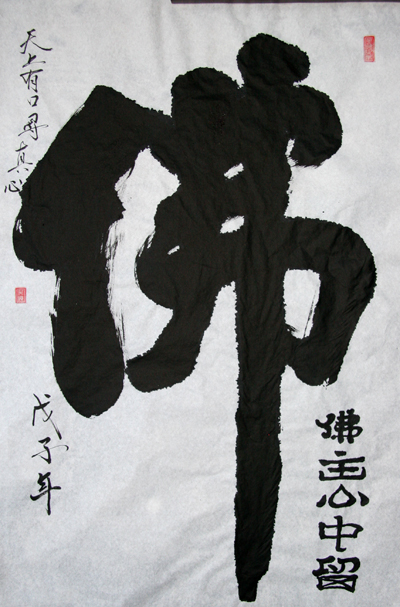 佛
佛主心中留
天上有口尋真心
戊子年